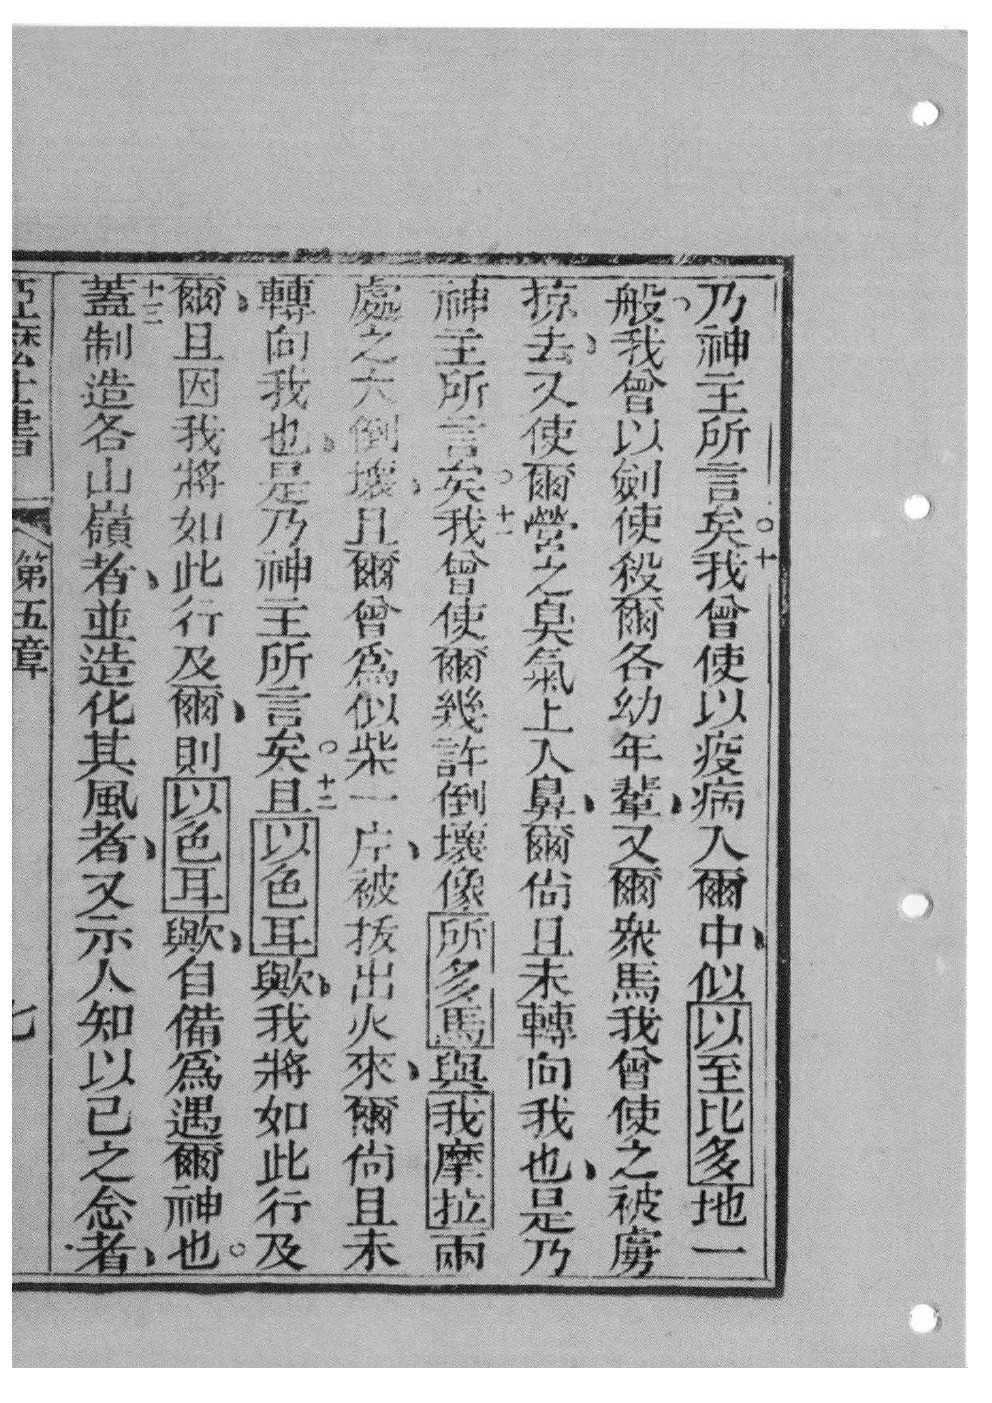 乃神主所言矣○十我曾使以疫病入爾中、似以至比多地一
般、我曾以劍使殺爾各幼年輩、又爾衆馬我曾使之被虜
掠去、又使爾營之臭氣上入鼻、爾尚且未轉向我也、是乃
神主所言矣○十一我曾使爾幾許倒壞像所多馬與我摩拉兩
處之大倒壞、且爾曾爲似柴一片、被拔出火來、爾尚且未
轉向我也、是乃神主所言矣○十二且以色耳歟、我將如此行及
爾、且因我將如此行及爾、則以色耳歟、自備爲遇爾神也○
十三蓋制造各山嶺者、並造化其風者、又示人知以已之念者、
亞麽士書 第五章 七